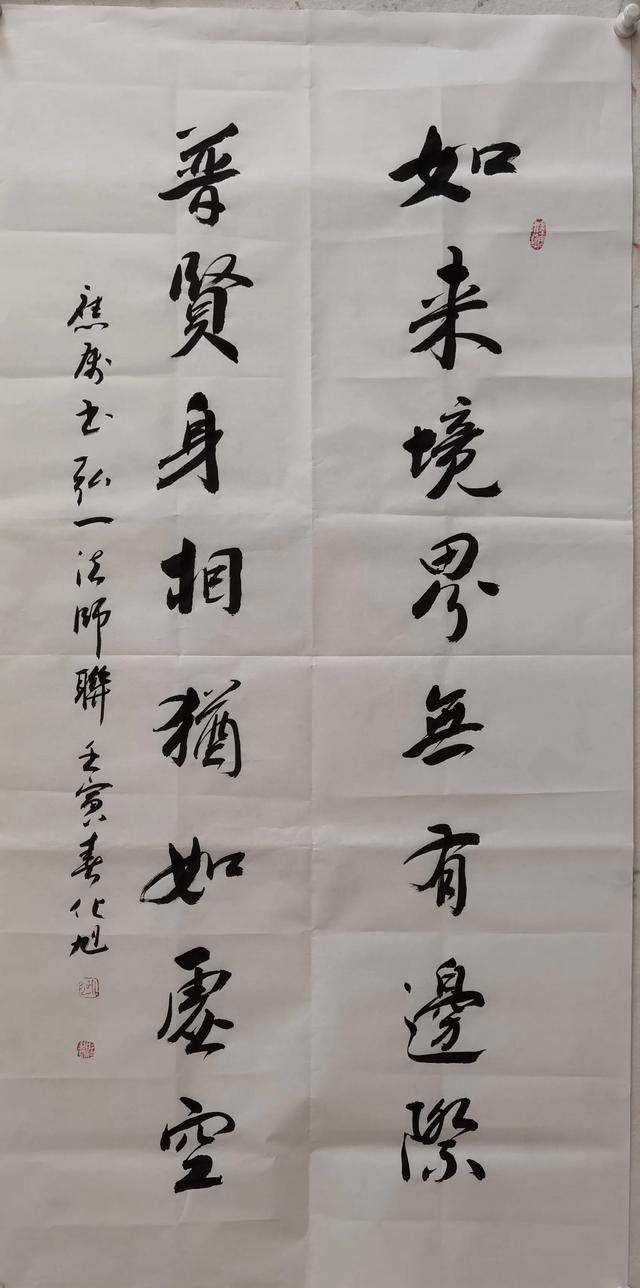 如来境界無有邊際
普賢身相猶如虛空
應屬书弘一法師聯壬寅春化旭